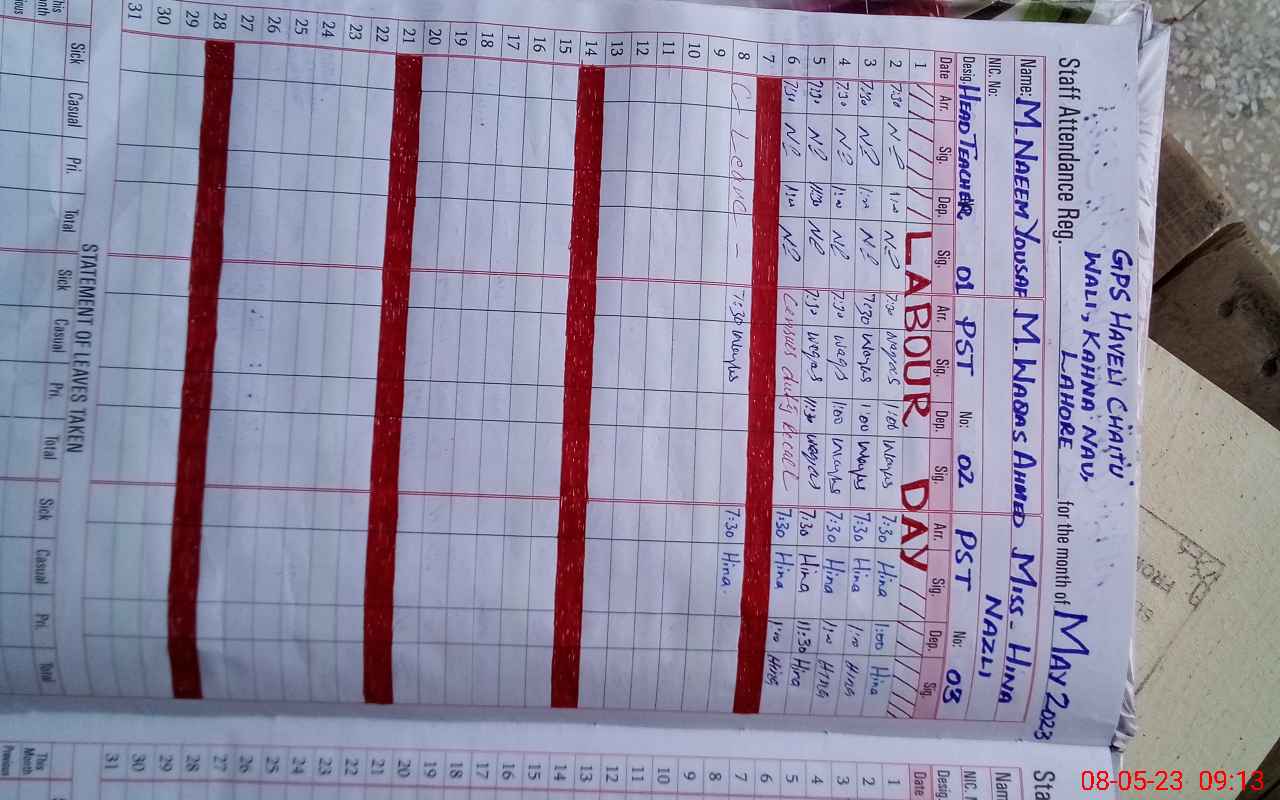 GPS HAVELI CHAITU
WALI, KAHNA NAU,
LAHORE
Staff Attendance Reg. for the month of MAY 2023
Name: M. NAEEM YOUSAF M. WAQAS AHMED MISS- HINA
NAZLI
NIC. No:
Desig. HEAD TEACHER 01 PST No: 02 PST No: 03
Date Arr. Sig. Dep. Sig. Arr. Sig. Dep. Sig. Arr. Sig. Dep. Sig.
1 LABOUR DAY
2 7:30 1:00 7:30 Waqas 1:00 Waqas 7:30 Hina 1:00 Hina
3 7:30 1:00 7:30 Waqas 1:00 Waqas 7:30 Hina 1:00 Hina
4 7:30 1:00 7:30 Waqas 1:00 Waqas 7:30 Hina 1:00 Hina
5 7:30 11:30 7:30 Waqas 11:30 Waqas 7:30 Hina 11:30 Hina
6 7:30 1:00 Census duty Recall 7:30 Hina 1:00 Hina
7
8 C- Leave - 7:30 Waqas 7:30 Hina.
9
10
11
12
13
14
15
16
17
18
19
20
21
22
23
24
25
26
27
28
29
30
31
STATEMENT OF LEAVES TAKEN
Sick Casual Pri. Total Sick Casual Pri. Total Sick Casual Pri. Total
This
Month
Previous
Sta
Nam
NIC. N
Desig.
Date
1
2
3
4
5
6
7
8
9
10
11
12
13
14
15
16
17
18
19
20
21
22
23
24
25
26
27
28
29
30
31
This
Month
Previous
08-05-23 09:13